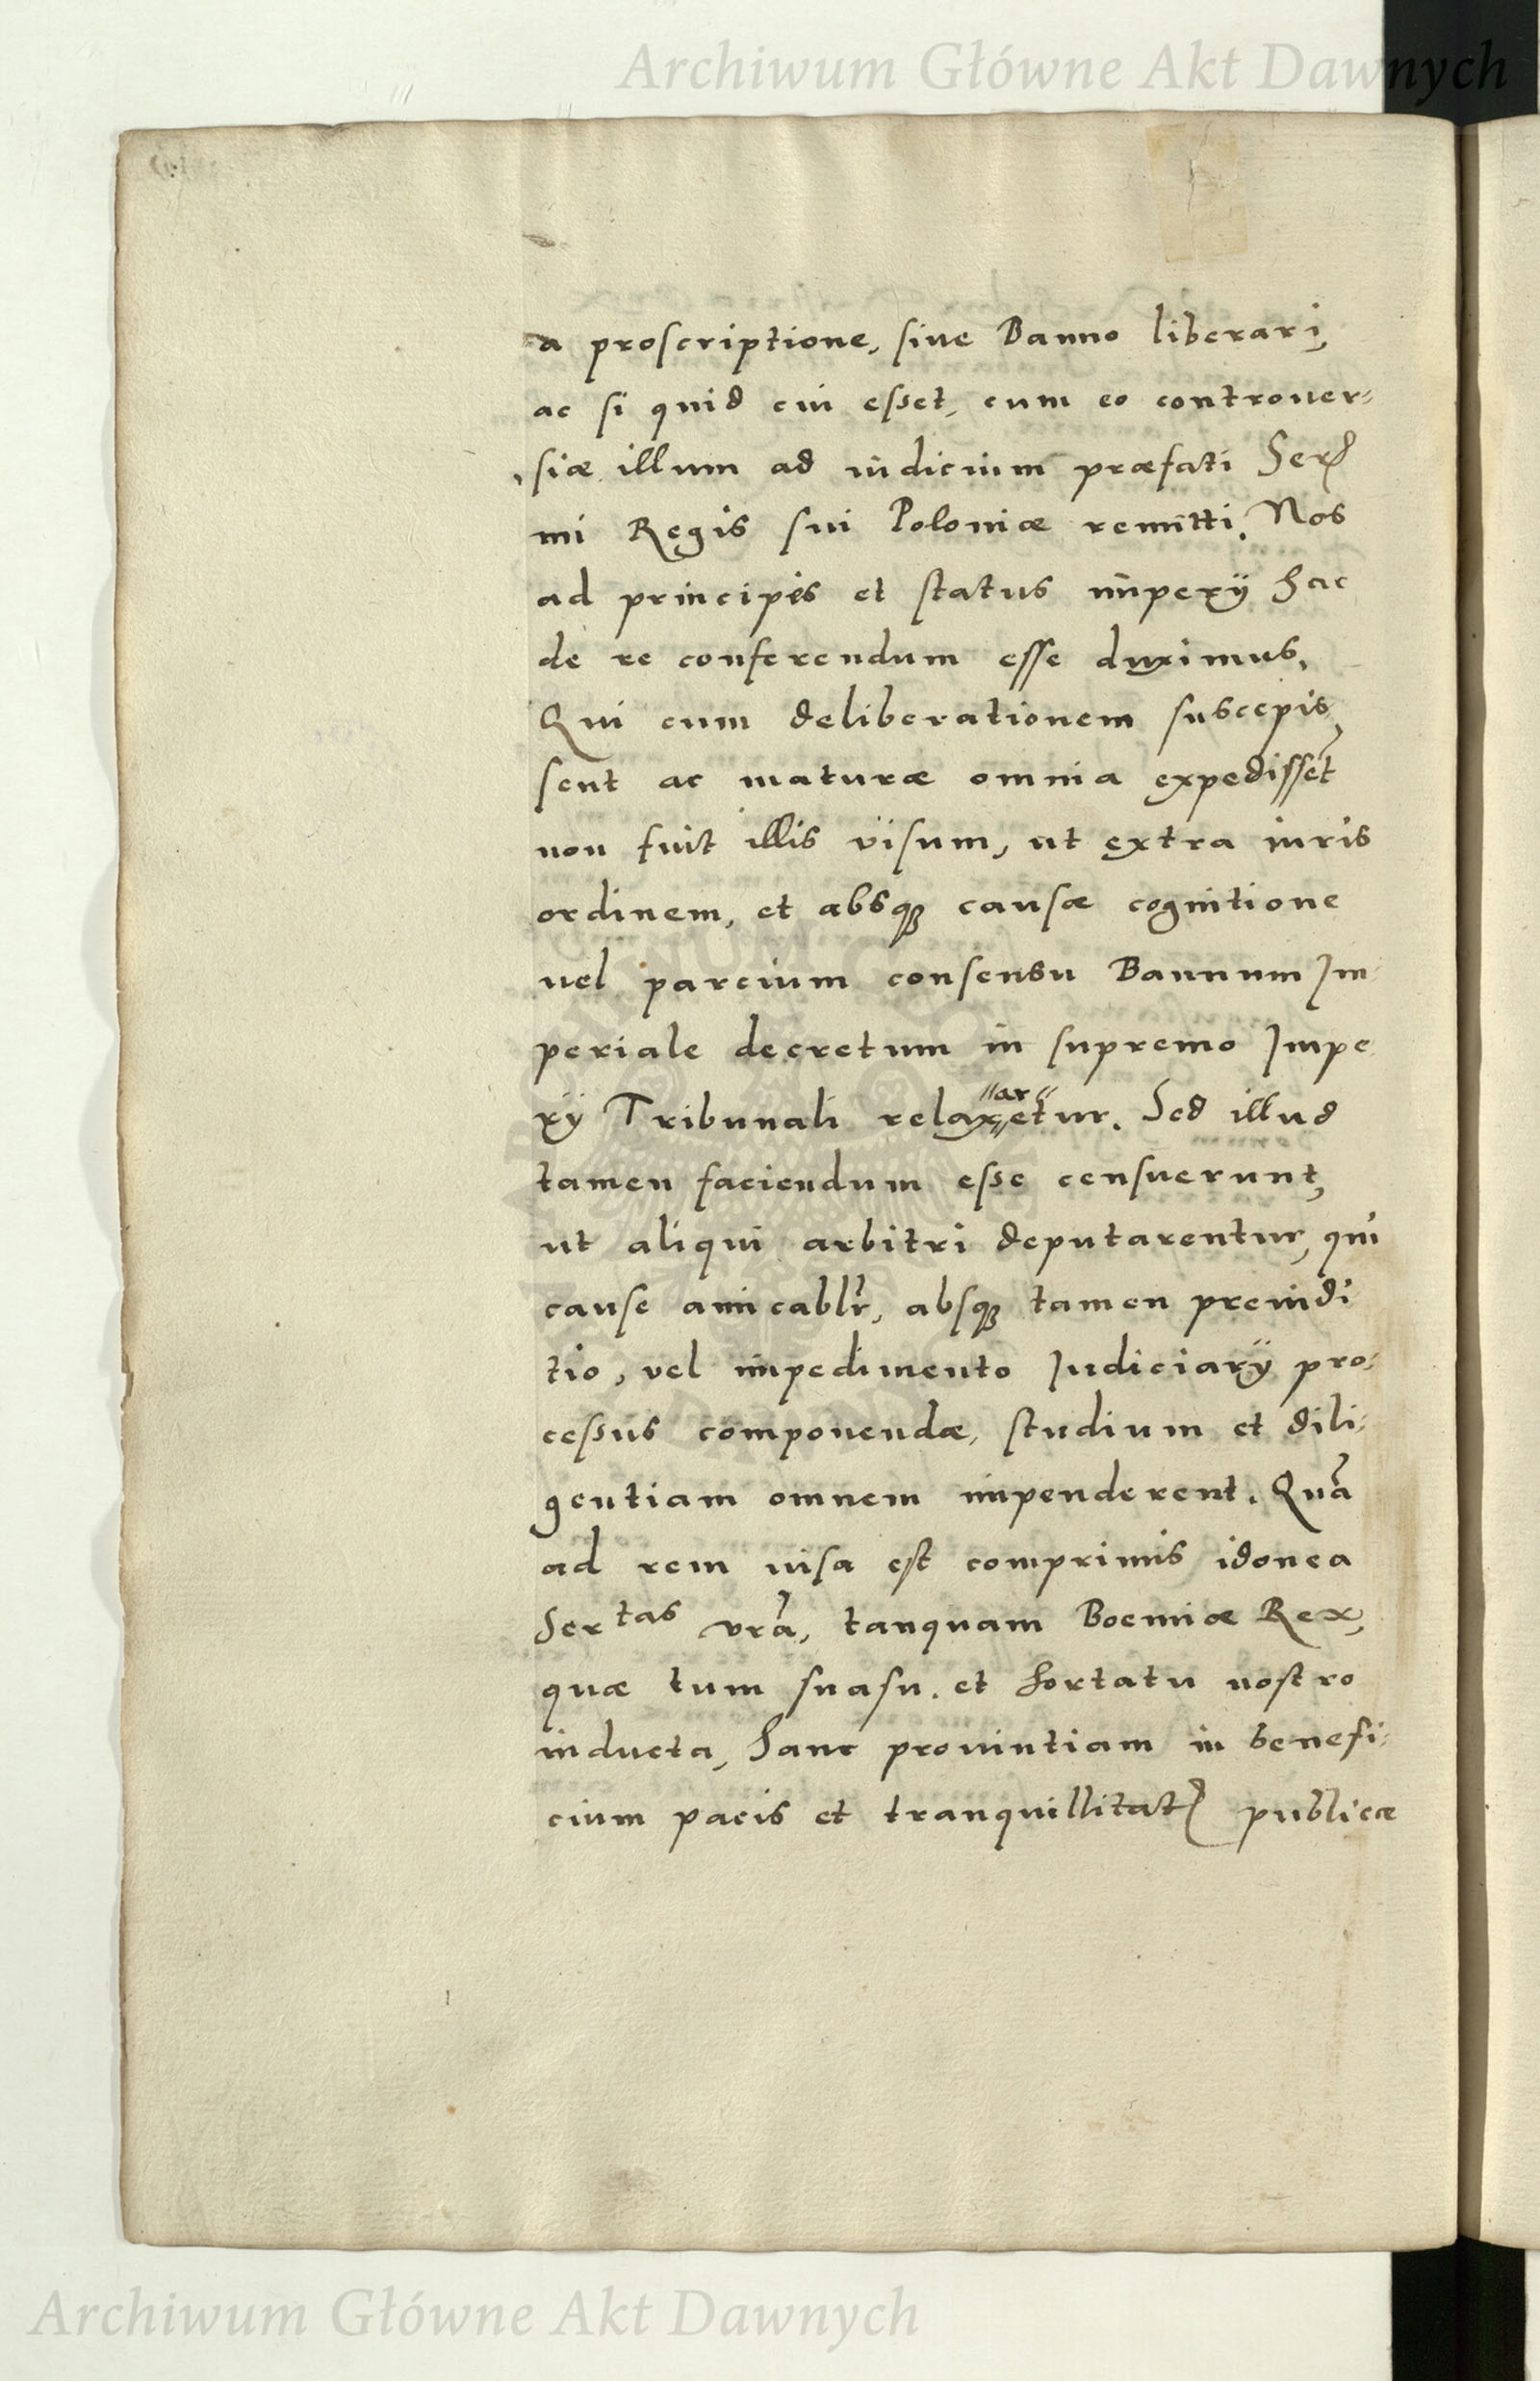 Archiwum Główne Akt Dawnych
a proscriptione, siue Banno liberari,
ac si quid cui esset, cum eo controuer-
siæ illum ad iudicium præfati Ser
mi Regis sui Poloniæ remitti. Nos
ad principes et status imperij hac
de re conferendum esse duximus.
Qui cum deliberationem suscepis
sent ac maturæ omnia expedissẽt
non fuit illis visum, ut extra iuris
ordinem, et absqꝫ causæ cognitione
uel parcium consensu Bannum Im
periale decretum in supremo Impe
rij Tribunali relaxetur. Sed illud
ar
tamen faciendum esse censuerunt,
ut aliqui arbitri deputarentur, qui
cause amicablr, absqꝫ tamen preiudi
tio, vel impedimento Judiciarij pro-
cessus componendæ, studium et dili-
gentiam omnem impenderent. Quã
ad rem uisa est comprimis idonea
Sertas vrã, tanquam Boemiæ Rex,
quæ tum suasu et hortatu nostro
inducta, hanc prouintiam in benefi-
cium pacis et tranquillitat publicæ
Archiwum Główne Akt Dawnych